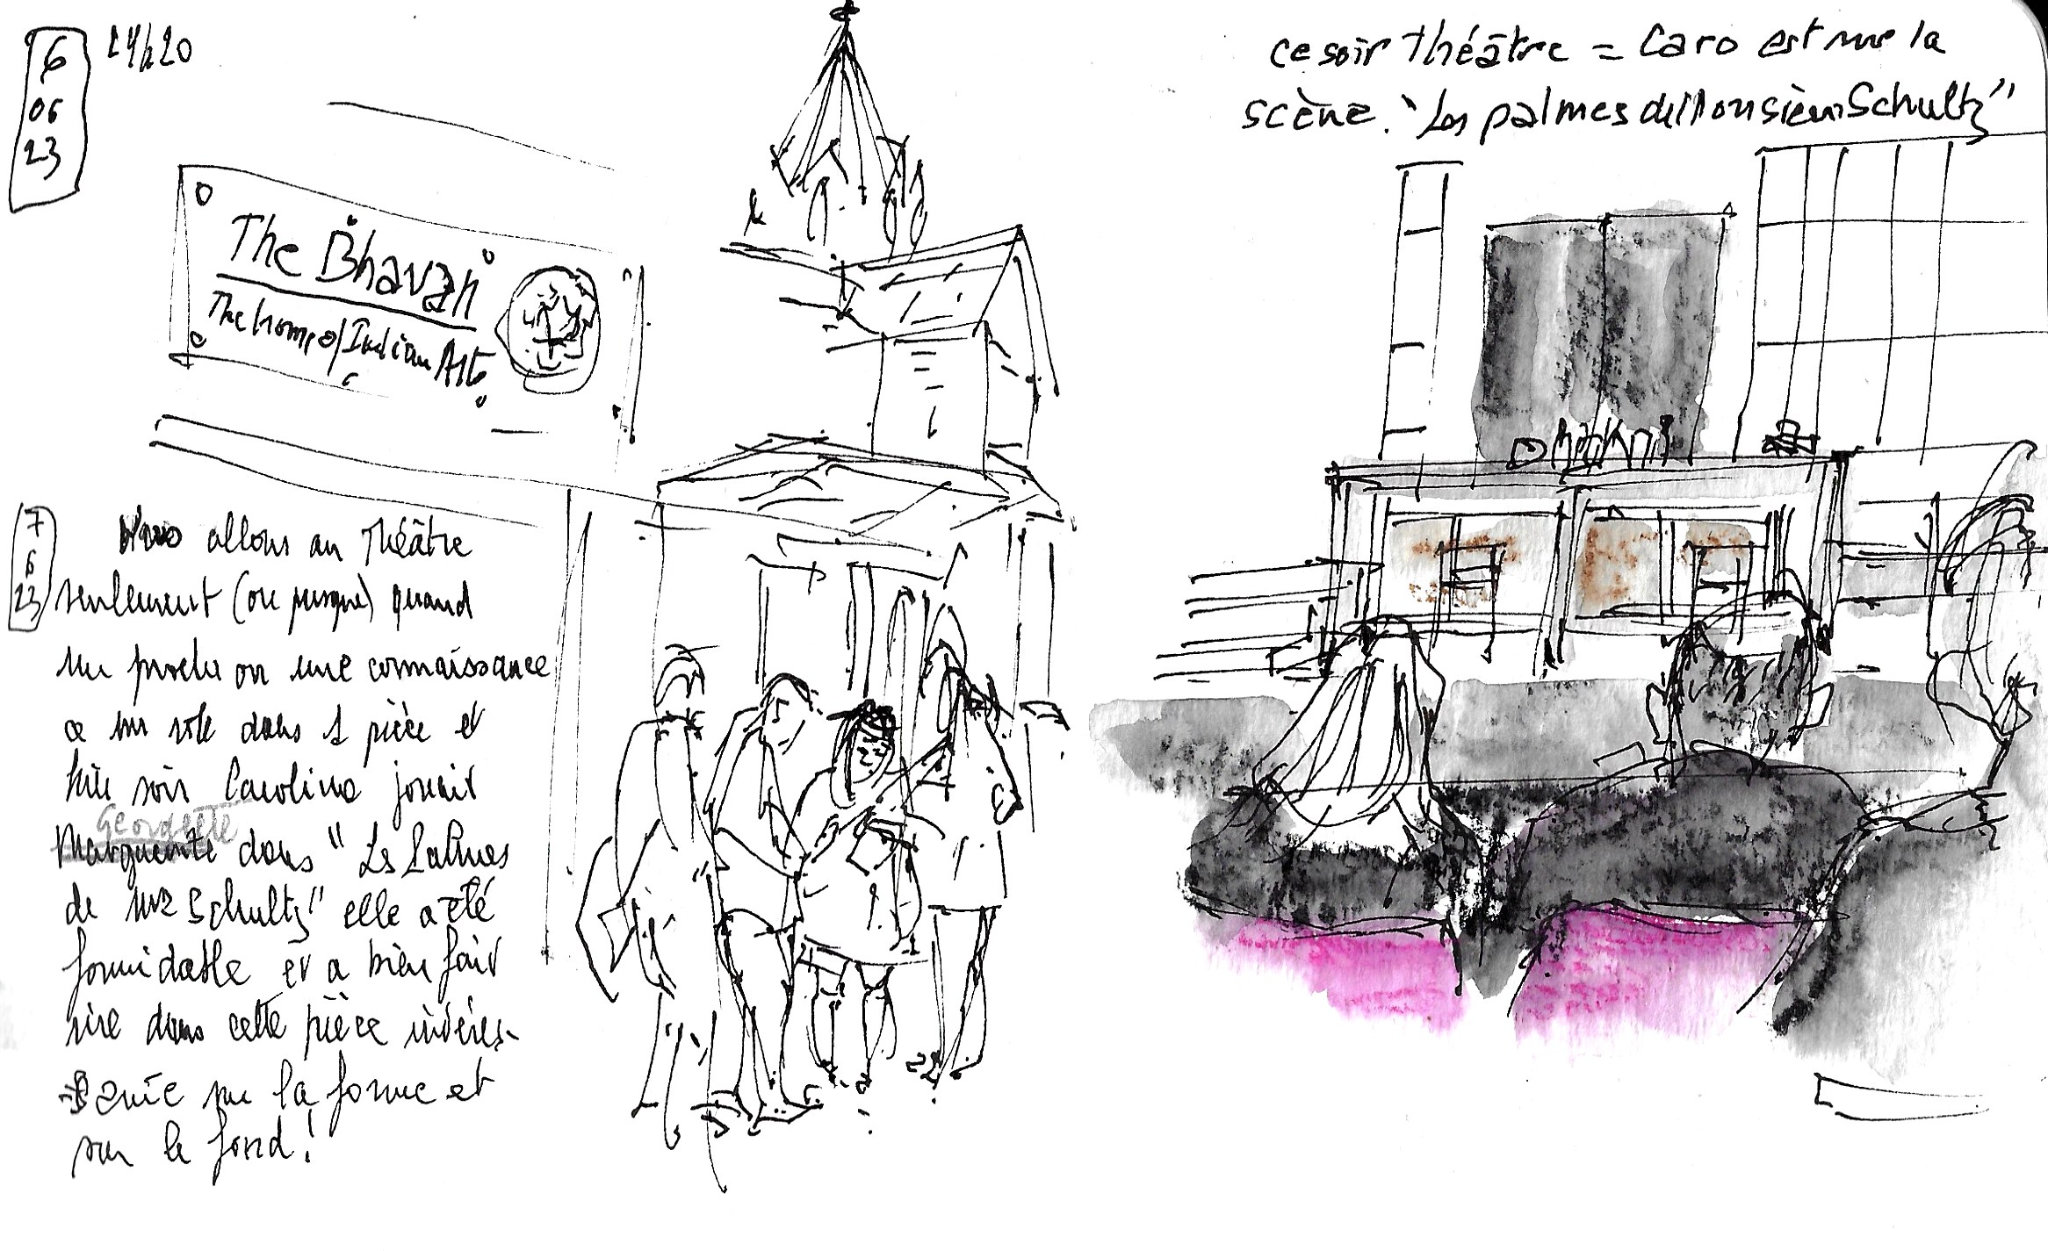 6
06
23
ce soir Théâtre = Caro est sur la
scène. "Les palmes de Monsieur Schultz"
The Bhavan
The home of Indian Arts
7
6
23
Nous allons au Théâtre
seulement (ou presque) quand
un proche ou une connaissance
a un rôle dans 1 pièce et
hier soir Caroline jouait
Georgette
Marguerite dans "Les Palmes
de Mr Schultz" elle a été
formidable et a bien fait
rire dans cette pièce intéres-
sante sur la forme et
sur le fond!